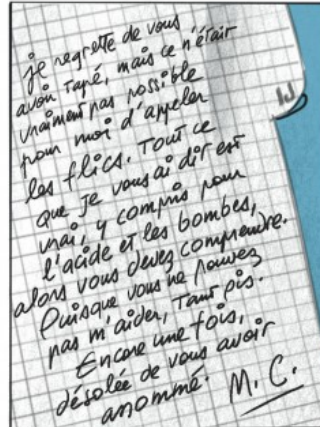 je regrette de vous
avoir tapé, mais ce n'était
vraiment pas possible
pour moi d'appeler
les flics. Tout ce
que je vous ai dit est
vrai, y compris pour
l'acide et les bombes,
alors vous devez comprendre.
Puisque vous ne pouvez
pas m'aider, tant pis.
Encore une fois,
désolée de vous avoir
assommé. M. C.